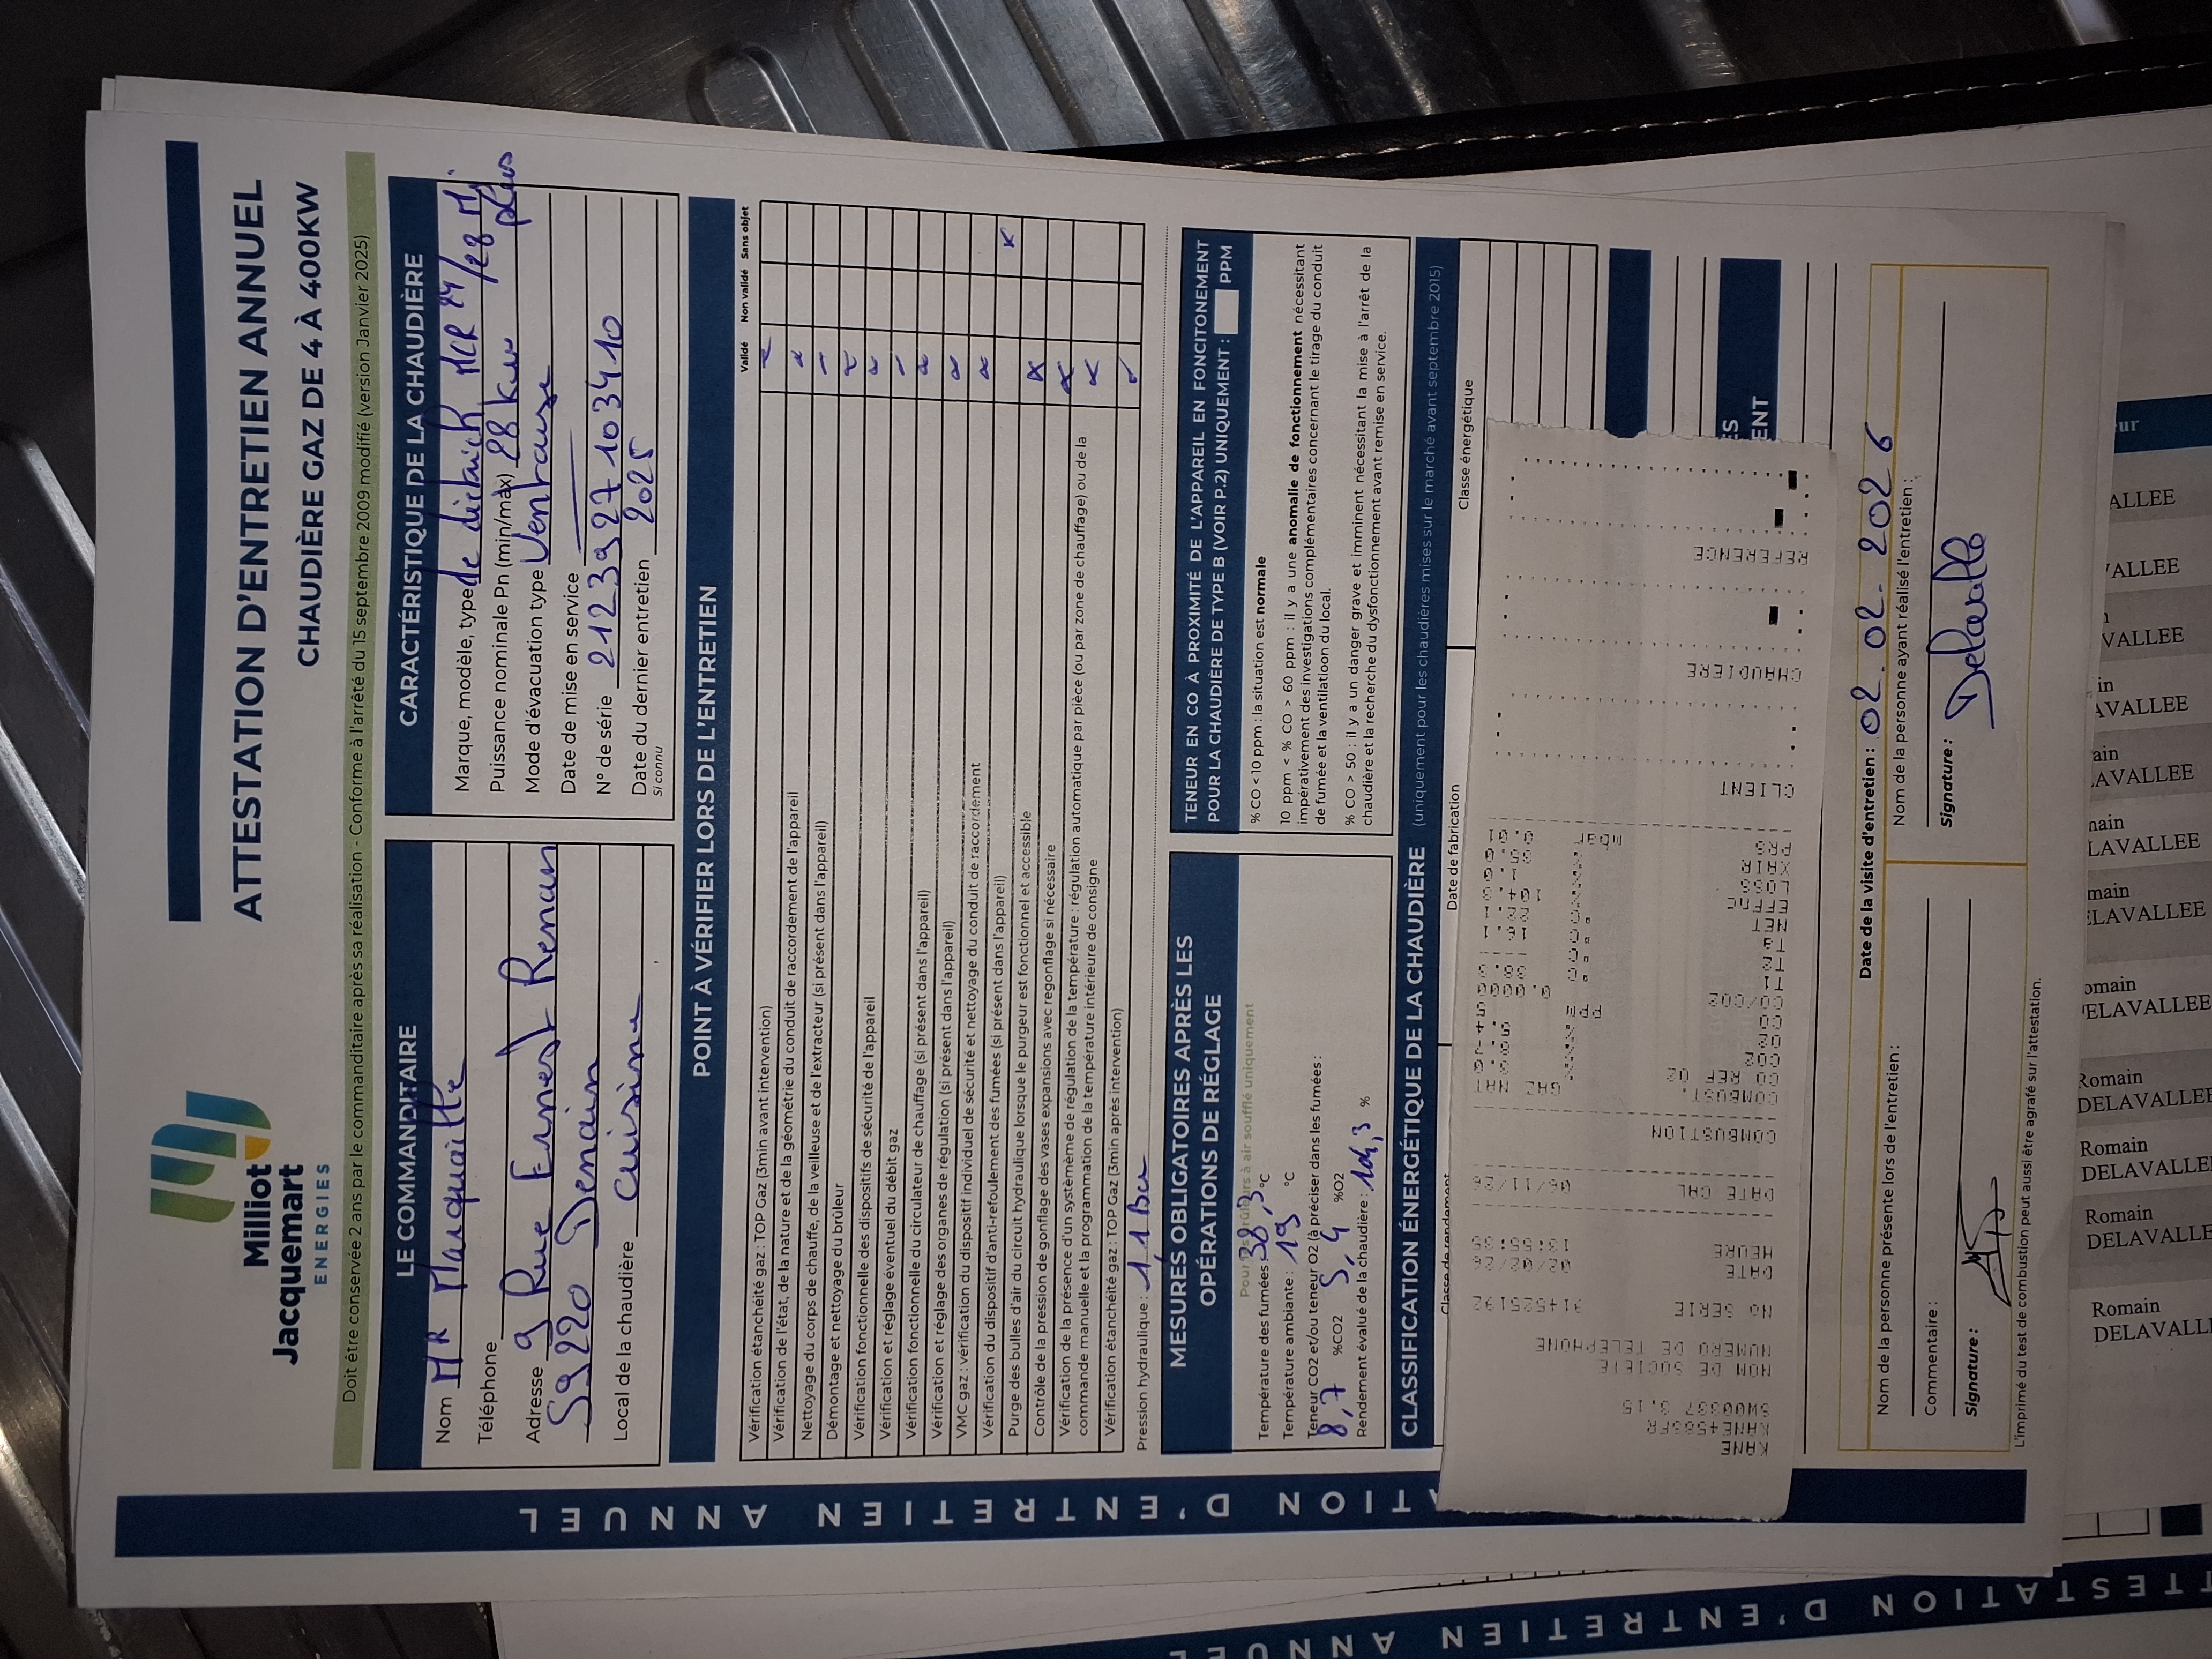 Milliot
Jacquemart
ENERGIES
ATTESTATION D'ENTRETIEN ANNUEL
CHAUDIÈRE GAZ DE 4 À 400KW
Doit être conservée 2 ans par le commanditaire après sa réalisation - Conforme à l'arrêté du 15 septembre 2009 modifié (version Janvier 2025)
LE COMMANDITAIRE
Nom MR Marquaille
Téléphone
Adresse 9 Rue Ernest Renan
59220 Denain
Local de la chaudière Cuisine
CARACTÉRISTIQUE DE LA CHAUDIÈRE
Marque, modèle, type de dietrich MCR 24/28 Mi plus
Puissance nominale Pn (min/màx) 28 kw
Mode d'évacuation type Ventouse
Date de mise en service
N° de série 2123927103410
Date du dernier entretien 2025
Si connu
POINT À VÉRIFIER LORS DE L'ENTRETIEN
Validé Non validé Sans objet
Vérification étanchéité gaz : TOP Gaz (3min avant intervention)
Vérification de l'état, de la nature et de la géométrie du conduit de raccordement de l'appareil
Nettoyage du corps de chauffe, de la veilleuse et de l'extracteur (si présent dans l'appareil)
Démontage et nettoyage du brûleur
Vérification fonctionnelle des dispositifs de sécurité de l'appareil
Vérification et réglage éventuel du débit gaz
Vérification fonctionnelle du circulateur de chauffage (si présent dans l'appareil)
Vérification et réglage des organes de régulation (si présent dans l'appareil)
VMC gaz : vérification du dispositif individuel de sécurité et nettoyage du conduit de raccordement
Vérification du dispositif d'anti-refoulement des fumées (si présent dans l'appareil)
Purge des bulles d'air du circuit hydraulique lorsque le purgeur est fonctionnel et accessible
Contrôle de la pression de gonflage des vases expansions avec regonflage si nécessaire
Vérification de la présence d'un systèmème de régulation de la température : régulation automatique par pièce (ou par zone de chauffage) ou de la
commande manuelle et la programmation de la température intérieure de consigne
Vérification étanchéité gaz : TOP Gaz (3min après intervention)
Pression hydraulique : 1,1 Bar
MESURES OBLIGATOIRES APRÈS LES
OPÉRATIONS DE RÉGLAGE
Pour les brûleurs à air soufflé uniquement
Température des fumées 38,3 °C
Température ambiante : 19 °C
Teneur CO2 et/ou teneur O2 (à préciser dans les fumées :
8,7 %CO2 5,4 %O2
Rendement évalué de la chaudière : 104,3 %
TENEUR EN CO À PROXIMITÉ DE L'APPAREIL EN FONCITONEMENT
POUR LA CHAUDIÈRE DE TYPE B (VOIR P.2) UNIQUEMENT : PPM
% CO < 10 ppm : la situation est normale
10 ppm < % CO > 60 ppm : il y a une anomalie de fonctionnement nécessitant
impérativement des investigations complémentaires concernant le tirage du conduit
de fumée et la ventilatioon du local.
% CO > 50 : il y a un danger grave et imminent nécessitant la mise à l'arrêt de la
chaudière et la recherche du dysfonctionnement avant remise en service.
CLASSIFICATION ÉNERGÉTIQUE DE LA CHAUDIÈRE (uniquement pour les chaudières mises sur le marché avant septembre 2015)
Classe de rendement
Date de fabrication
Classe énergétique
KANE
KANE458SFR
SW00337 3.15
NOM DE SOCIETE
NUMERO DE TELEPHONE
No SERIE 914525192
DATE 02/02/26
HEURE 13:55:35
DATE CAL 06/11/26
COMBUSTION
COMBUST. GAZ NAT
CO REF O2
CO2
O2 5.4
CO ppm
CO/CO2 0.0000
T1
T2
Ta
NET
EFFnC 104.3
LOSS
XAIR
PRS mbar 0.01
CLIENT
CHAUDIERE
REFERENCE
Date de la visite d'entretien : 02.02.2026
Nom de la personne présente lors de l'entretien :
Commentaire :
Signature :
Nom de la personne ayant réalisé l'entretien :
Signature : Delavalle
L'imprimé du test de combustion peut aussi être agrafé sur l'attestation.
ATION D'ENTRETIEN ANNUEL
TTESTATION D'ENTRETIEN ANNUE
Romain
DELAVALLEE
Romain
DELAVALLEE
Romain
DELAVALLEE